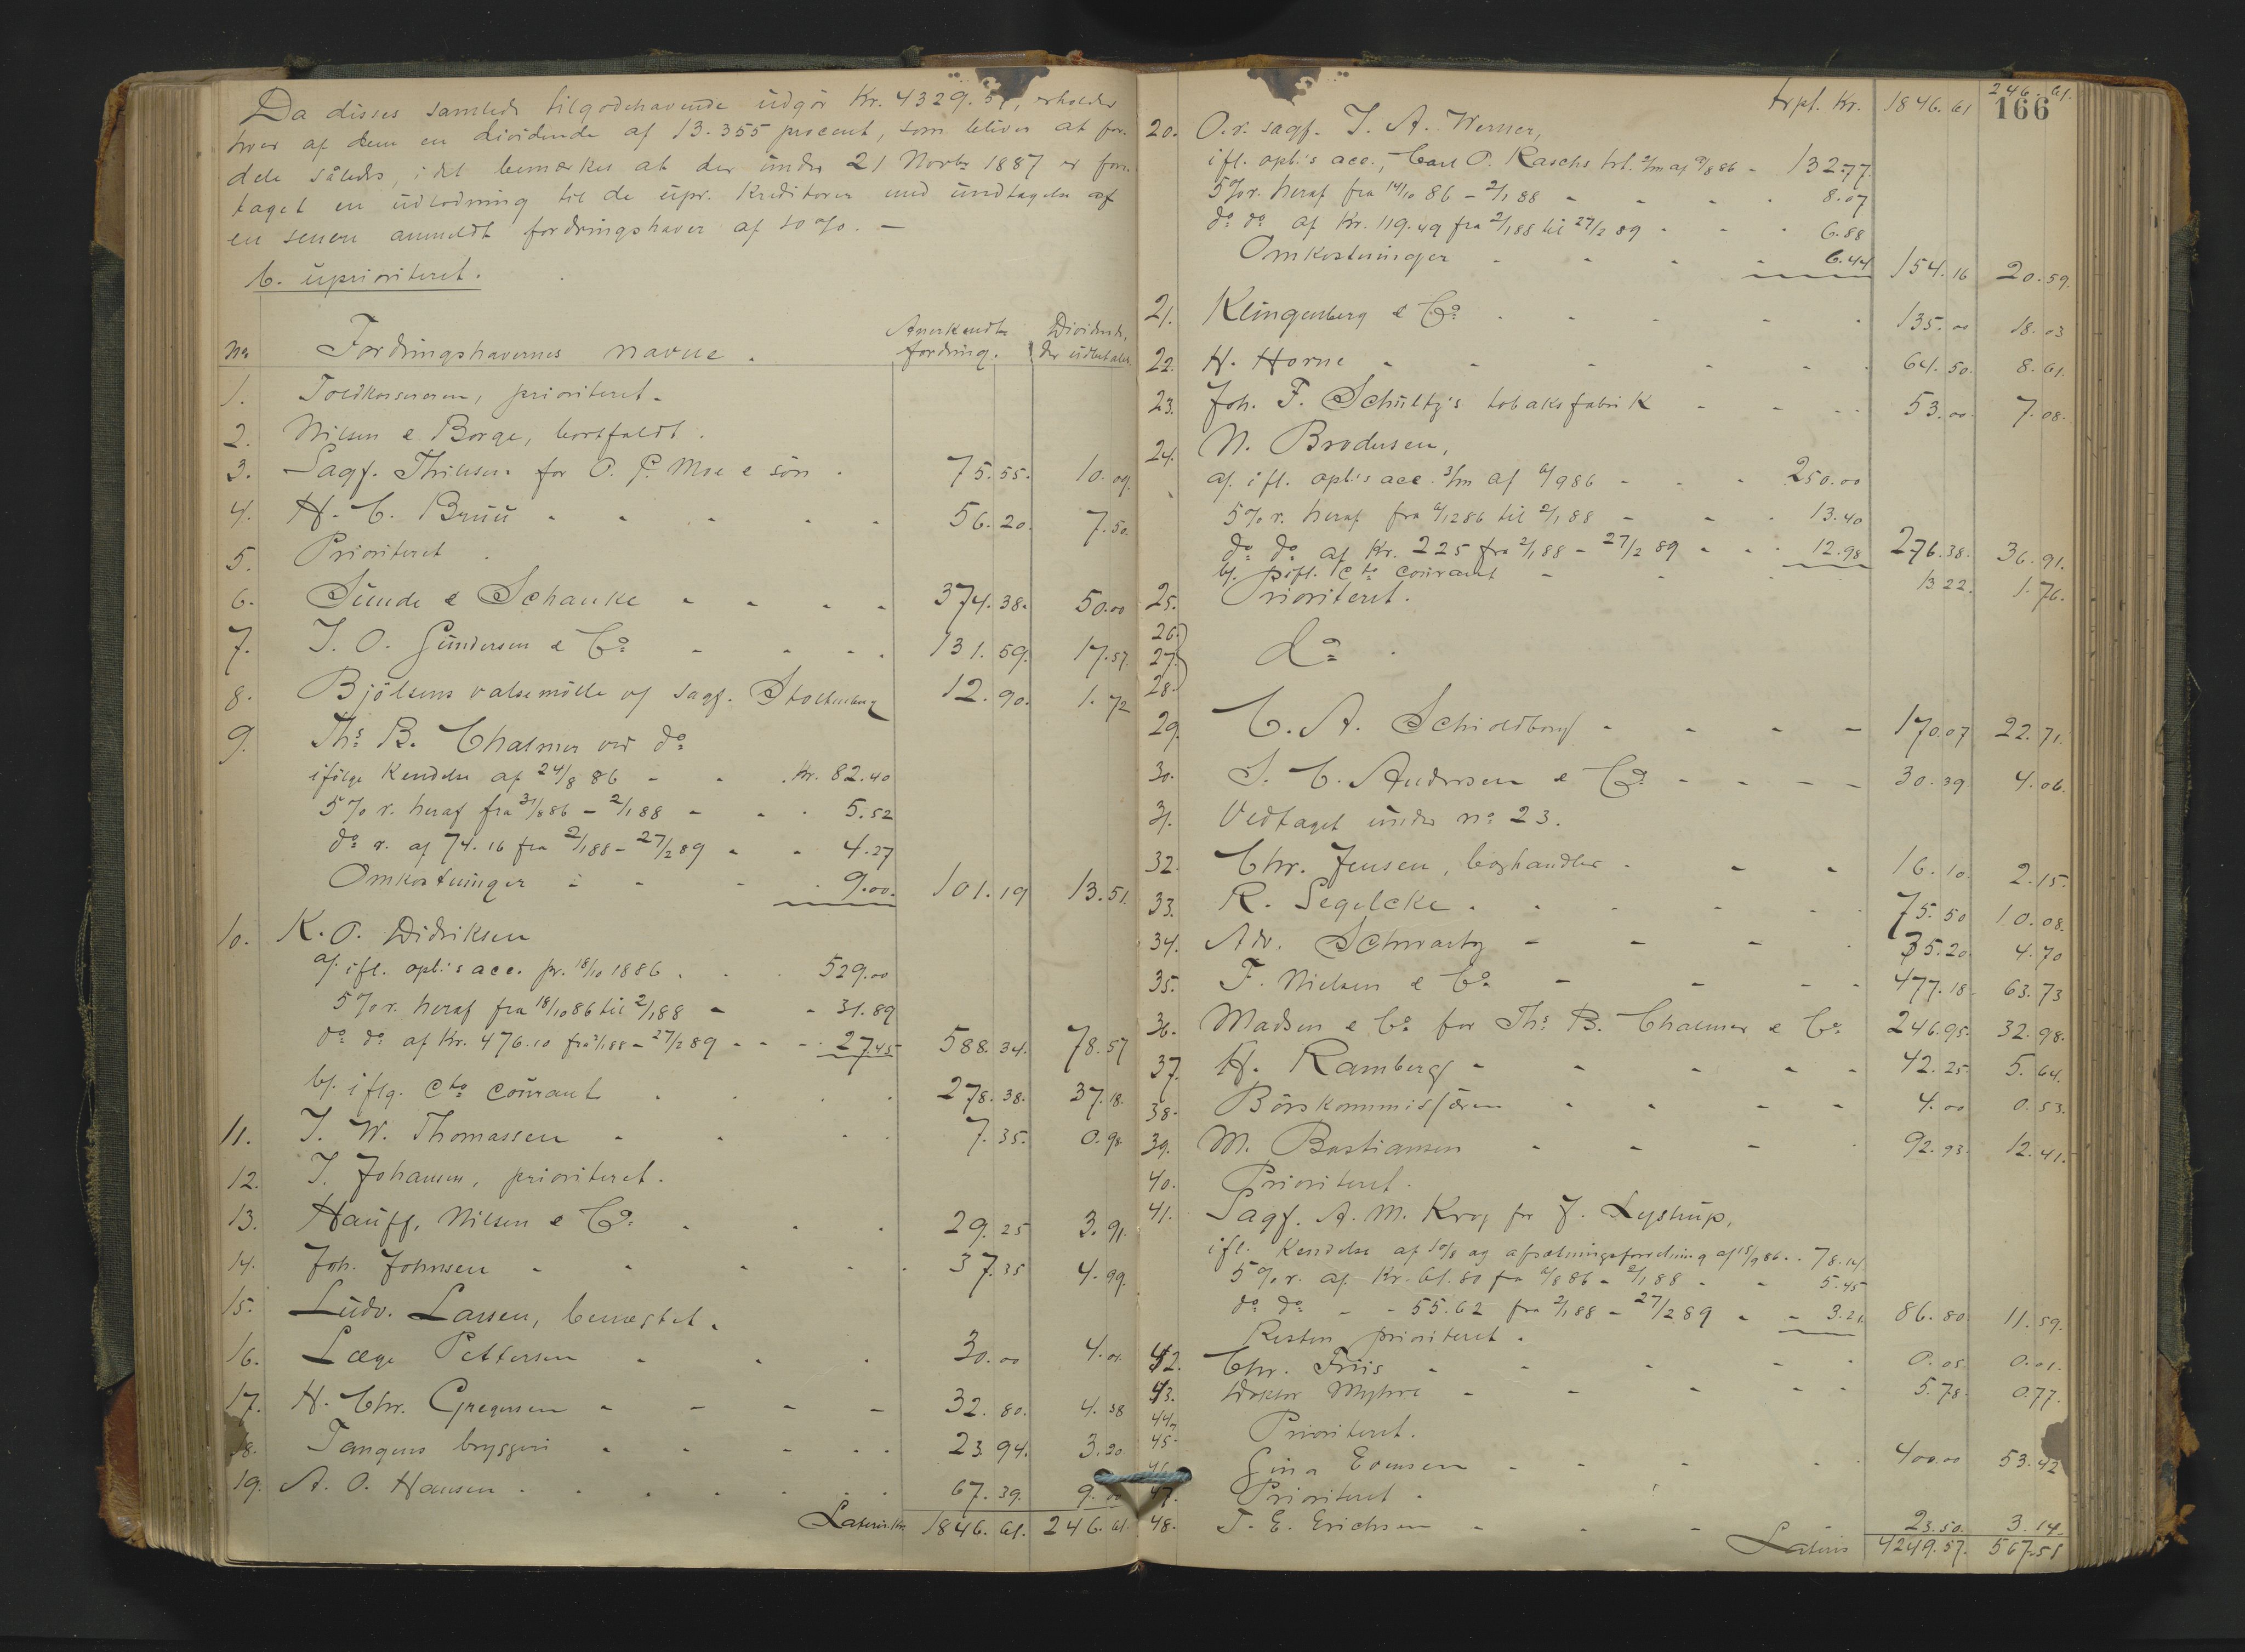 Da disses samlede tilgodehavende udgör Kr. 4329.57, erholder
hver af dem en dividende af 13.355 procent, som bliver at for-
dele således, idet bemærkes at der under 21 Novbr 1887 er fore-
taget en udlodning til de upr. Kreditorer med undtagelse af
en senere anmeldt fordringshaver af 10 %. —
b. uprioriteret.
No Fordringshavernes navne. Anerkendte fordring. Dividende, der udbetales.
1. Toldkassereren, prioriteret.
2. Nilsen & Borge, bortfaldt.
3. Sagf. for O. P. Moe & sön . 75.55. 10.09.
4. H. C. Bruu - - - - - 56.20. 7.50.
5. Prioriteret.
6. Sunde & Schanke - - - - 374.38. 50.00
7. J. O. Gundersen & Co. - - - - 131.59. 17.57.
8. Bjölsens valsemölle v/ sagf. Stoltenberg 12.90. 1.72
9. Ths. B. Chalmer ved do
ifölge Kendelse af 24/8 86 - - . Kr. 82.40
5 % r. heraf fra 31/8 86 - 2/1 88 - - - 5.52
do r. af 74.16 fra 2/1 88 - 27/2 89 - - 4.27
Omkostninger - - - - 9.00. 101.19 13.51.
10. K. O. Didriksen
a/. ifl. opl.'s acc. pr. 18/10 1886 . - . 529.00
5 % r. heraf fra 18/10 86 til 2/1 88 - - 31.89
do do af Kr. 476.10 fra 2/1 88 - 27/2 89 - - - 27.45 588.34. 78.57
b/. iflg. Cto courant . . . . 278.38. 37.18.
11. J. W. Thomassen - - - - 7.35. 0.98
12. J. Johansen, prioriteret.
13. Hauff, Nilsen & Co. . - . 29.25 3.91.
14. Joh. Johnsen - - - - . 37.35 4.99.
15. Ludv. Larsen, benægtet.
16. Læge Pettersen - - . 30.00 4.01.
17. H. Chr. Gregersen - - - - 32.80. 4.38
18. Tangens bryggeri - - - - - 23.94. 3.20
19. A. O. Hansen . . . . . . . 67.39. 9.00
Lateris Kr. 1846.61. 246.61.
166
Trpt. Kr. 1846.61 246.61.
20. O.r. sagf. J. A. Werner,
ifl. opl.'s acc., Carl O. Raschs trt. 132.77.
5 % r. heraf fra 14/10 86 - 2/1 88 - - - . 8.07
do do af Kr. 119.49 fra 2/1 88 til 27/2 89 . - . 6.88
Omkostninger - - - - 6.44 154.16 20.59.
21. Klingenberg & Co. . - - - - 135.00 18.03
22. H. Horne - - - - - . 64.50. 8.61.
23. Joh. F. Schultz's tobaksfabrik - - - - 53.00 7.08.
24. N. Brodersen,
a/. ifl. opl.'s acc. 3/m af 6/9 86 - - - 250.00
5 % r. heraf fra 6/12 86 til 2/1 88 - - . 13.40
do do af Kr. 225 fra 2/1 88 - 27/2 89 - - - 12.98 276.38. 36.91.
b/. ifl. Cto courant - - . 13.22. 1.76.
25. Prioriteret.
26.
27. do .
28.
29. C. A. Schioldborg - - - - 170.07 22.71.
30. S. C. Andersen & Co. - - - - 30.39 4.06.
31. Vedtaget under no 23.
32. Chr. Jensen, boghandler . - - 16.10. 2.15.
33. R. Segelcke . . - - - . 75.50 10.08.
34. Adv. Schwartz - - - . 35.20 4.70
35. F. Nielsen & Co. - - - - 477.18 63.73
36. Madsen & Co. for Ths. B. Chalmer & Co. 246.95. 32.98.
37. H. Ramberg - - - - - 42.25 5.64.
38. Börskommissæren - - - - 4.00 0.53.
39. M. Bastiansen - - - . 92.93. 12.41.
40. Prioriteret.
41. Sagf. A. M. Krog for J. Lystrup,
ifl. Kendelse af 10/8 og afsætningsforretning af 15/9 86 . . 78.14
5 % r. af Kr. 61.80 fra 6/8 86 - 2/1 88 - - 5.45
do do - - 55.62 fra 2/1 88 - 27/2 89 - - 3.21 86.80 11.59.
Resten prioriteret.
42. Chr. Friis - - - - . 0.05 0.01.
43. Doktor Myhre - - - - - 5.78. 0.77.
44.
45. Prioriteret.
46. Gina Evensen - - - - . 400.00 53.42
47. Prioriteret .
48. T. E. Erichsen - - - - 23.50. 3.14.
Lateris 4249.57. 567.51